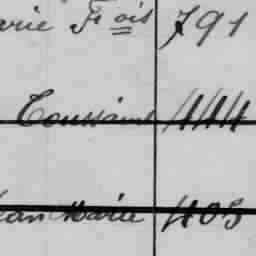 arie Fr ois 791
Toussaint 444
Jean Marie 403